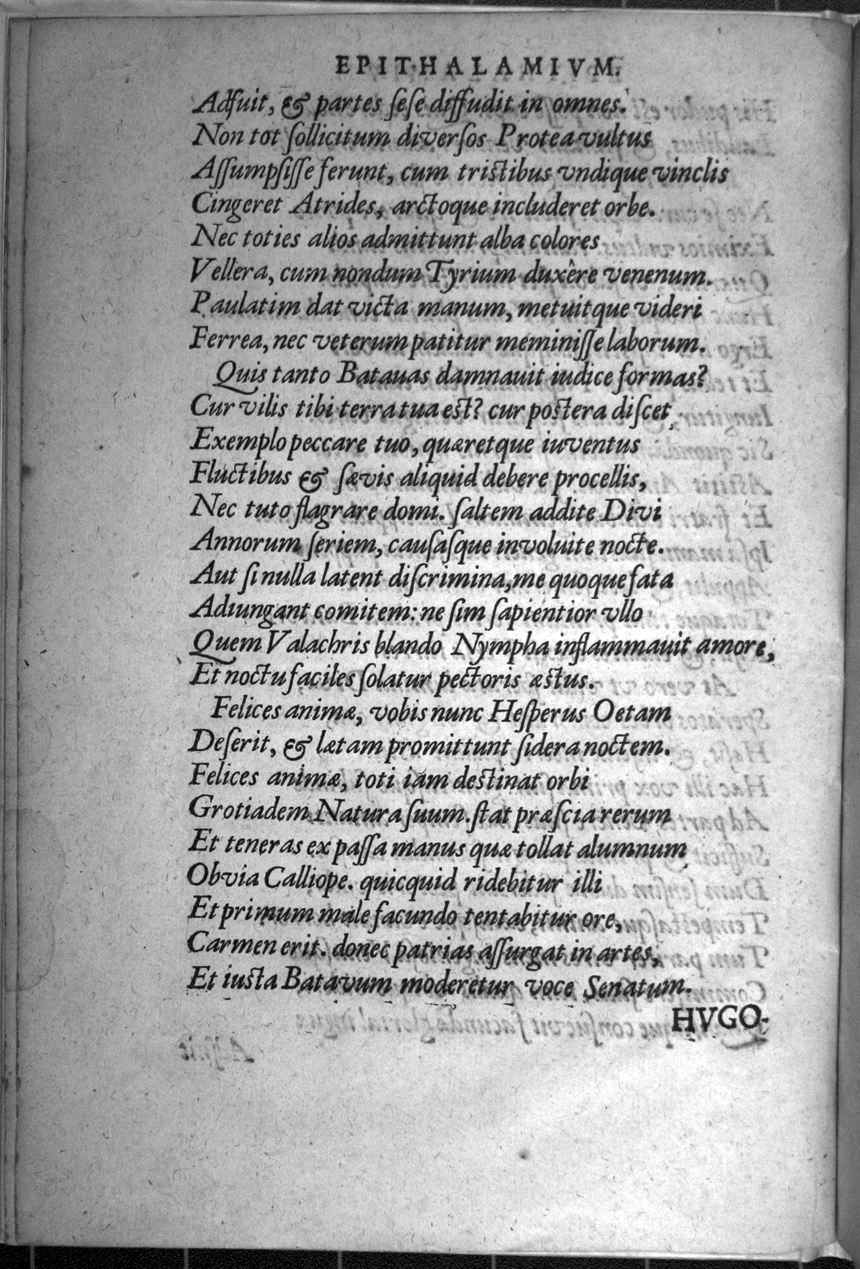 EPITHALAMIVM.
Adſuit, & partes ſeſe diffudit in omnes.
Non tot ſollicitum diverſos Protea vultus
Aſſumpſiſſe ferunt, cum triſtibus vndique vinclis
Cingeret Atrides, arctoque includeret orbe.
Nec toties alios admittunt alba colores
Vellera, cum nondum Tyrium duxêre venenum.
Paulatim dat victa manum, metuitque videri
Ferrea, nec veterum patitur meminiſſe laborum.
Quis tanto Batauas damnauit iudice formas?
Cur vilis tibi terra tua eſt? cur poſtera diſcet,
Exemplo peccare tuo, quæretque iuventus
Fluctibus & ſævis aliquid debere procellis,
Nec tuto flagrare domi. ſaltem addite Divi
Annorum ſeriem, cauſaſque involuite nocte.
Aut ſi nulla latent diſcrimina, me quoque fata
Adiungant comitem: ne ſim ſapientior vllo
Quem Valachris blando Nympha inflammauit amore,
Et noctu faciles ſolatur pectoris æſtus.
Felices animæ, vobis nunc Heſperus Oetam
Deſerit, & lætam promittunt ſidera noctem.
Felices animæ, toti iam deſtinat orbi
Grotiadem Natura ſuum. ſtat præſcia rerum
Et teneras expaſſa manus quæ tollat alumnum
Obvia Calliope. quicquid ridebitur illi
Et primum male facundo tentabitur ore,
Carmen erit. donec patrias aſſurgat in artes,
Et iuſta Batavum moderetur voce Senatum.
HVGO-